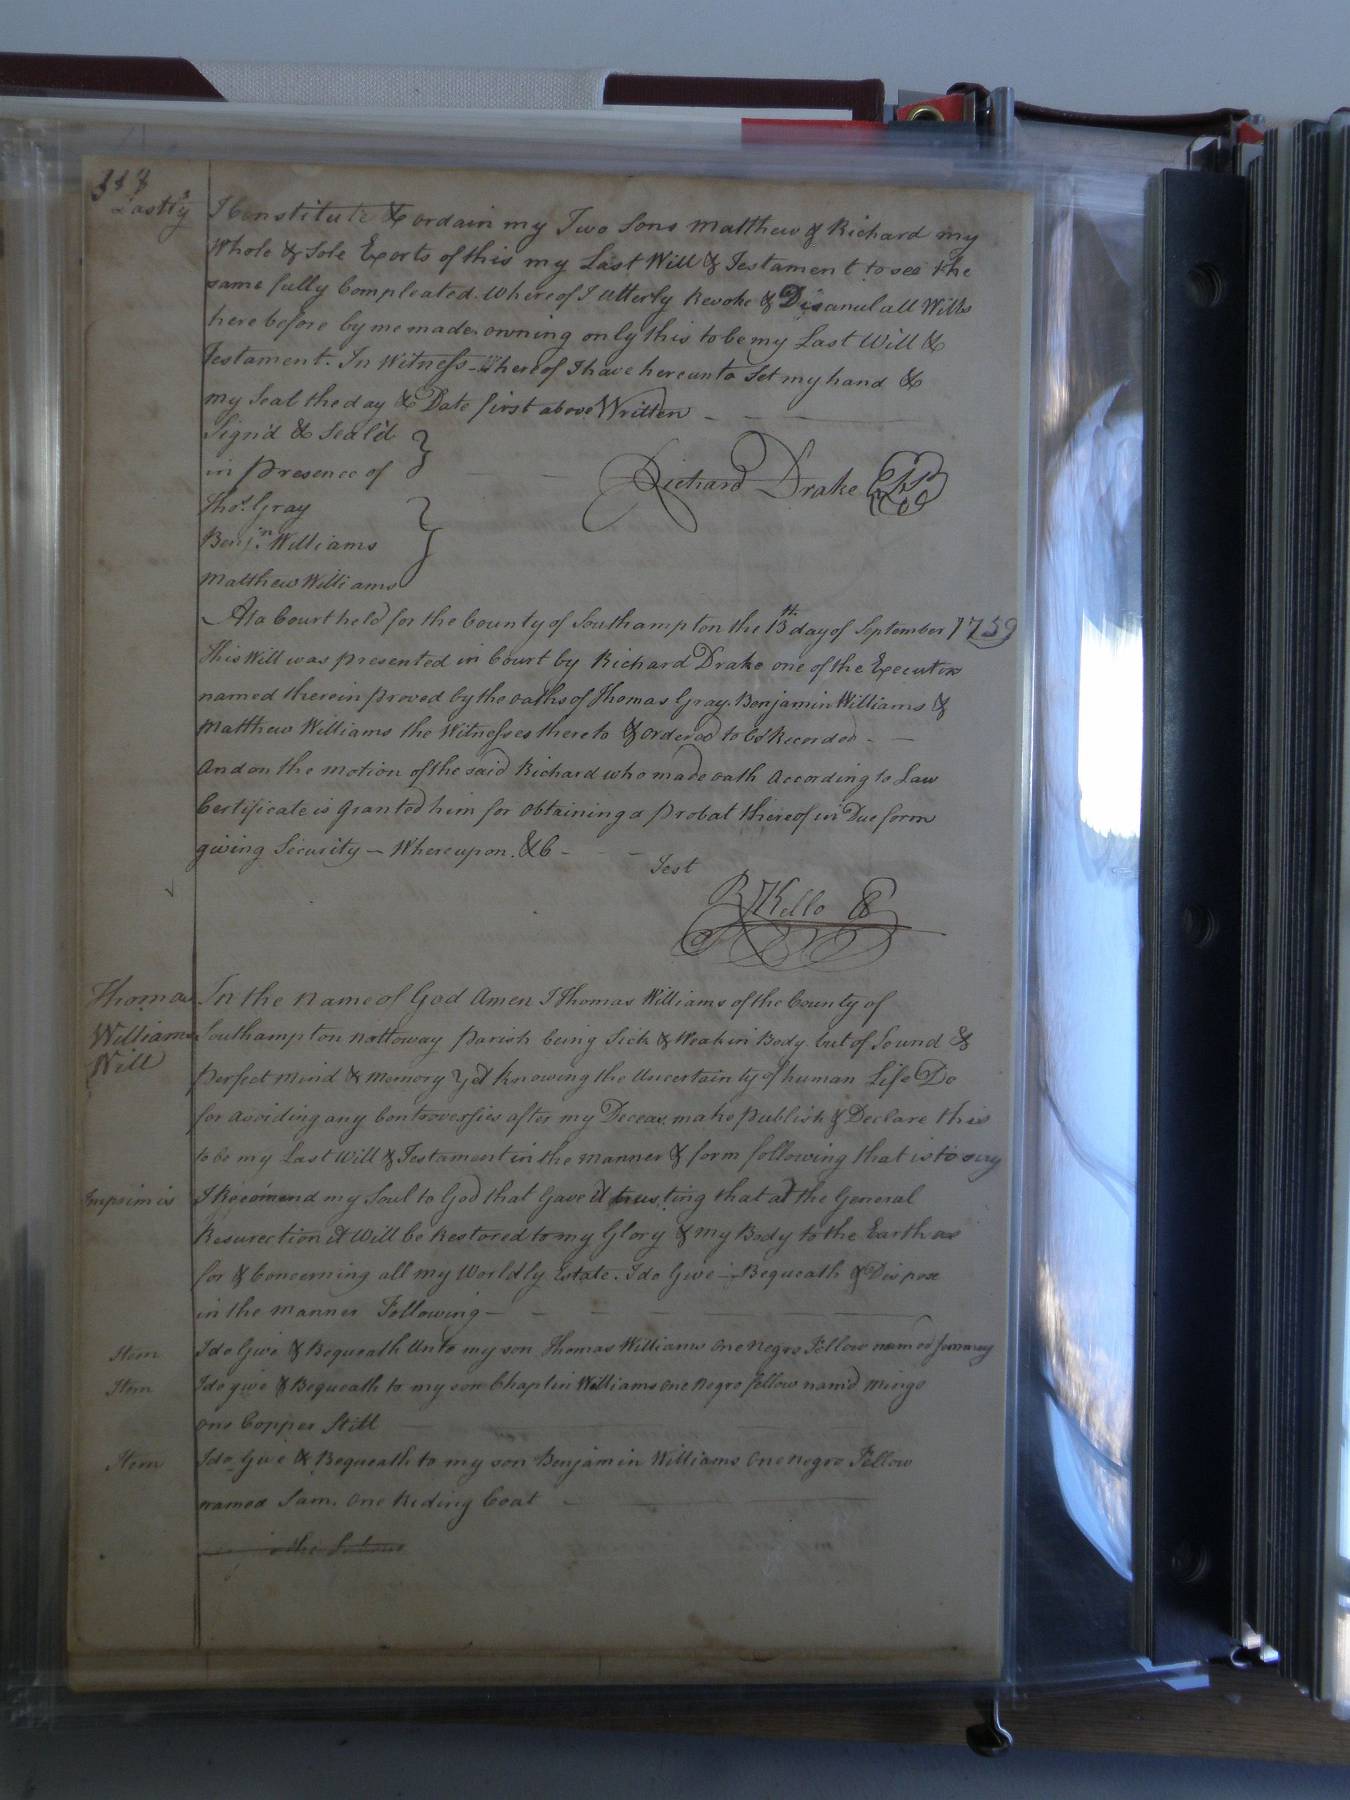 338
Lastly I Constitute & ordain my Two Sons Matthew & Richard my
Whole & Sole Exorts of this my Last Will & Testament to see the
same fully Compleated. Whereof I utterly Revoke & Disanul all Wills
here before by me made owning only this to be my Last Will &
Testament. In Witness Whereof I have hereunto Set my hand &
my Seal the day & Date first above Written
Sign'd & Seal'd
in Presence of
Richard Drake
Thos. Gray
Benjn. Williams
Matthew Williams
At a Court held for the County of Southampton the 13th day of September 1759
This Will was presented in Court by Richard Drake one of the Executors
named therein proved by the oaths of Thomas Gray. Benjamin Williams &
Matthew Williams the Witnesses thereto & ordered to be Recorded
And on the motion of the said Richard who made oath According to Law
Certificate is Granted him for obtaining a Probat thereof in Due form
giving Security — Whereupon. &C
Test
R Kello
Thomas In the Name of God Amen I Thomas Williams of the County of
Williams Southampton nottoway Parish being Sick & Weak in Body. but of Sound &
Will Perfect mind & memory Yet knowing the Uncertainty of human Life Do
for avoiding any Controversies after my Deceas. make Publish & Declare this
to be my Last Will & Testament in the manner & form following that is to say
Imprimis I Recomend my Soul to God that Gave it trusting that at the General
Resurection it Will be Restored to my Glory & my Body to the Earth as
for & Concerning all my Worldly Estate. I do Give Bequeath & Dispose
in the manner Following
Item I do Give & Bequeath Unto my son Thomas Williams one Negro Fellow named
Item I do give & Bequeath to my son Chaplin Williams one Negro fellow nam'd Mingo
one Copper Still
Item I do Give & Bequeath to my son Benjamin Williams One negro Fellow
named Sam. One Riding Coat